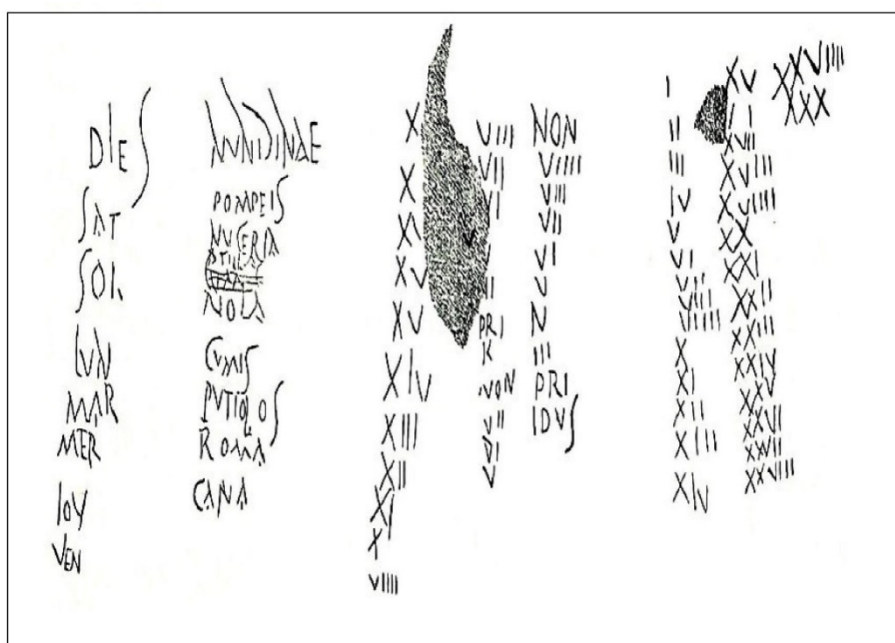 DIES
SAT
SOL
LUN
MAR
MER
IOV
VEN
NUNDINAE
POMPEIS
NUSERIA
NOLA
CUMIS
PUTIOLOS
ROMA
X
X
XV
XV
XIV
XIII
XII
XI
X
VIIII
VIII
VII
VI
PRI
K
NON
VII
VI
V
NON
VIIII
VIII
VII
VI
V
N
III
PRI
IDUS
I
II
III
IV
V
VI
VII
VIII
VIIII
X
XI
XII
XIII
XIV
XV
XVII
XVIII
XVIIII
XX
XXI
XXII
XXIII
XXIV
XXV
XXVI
XXVII
XXVIII
XXVIIII
XXX